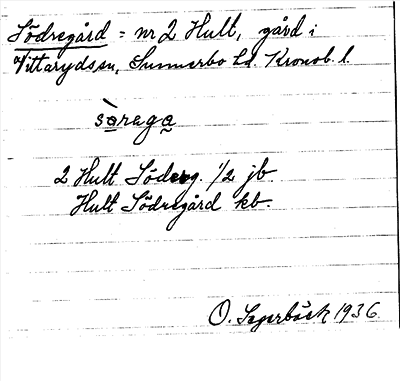 Södregård = nr 2 Hult, gård i
Vittaryds sn, Sunnerbo hd. Kronob. l.
sàrega
2 Hult Söderg. 1/2 jb.
Hult Södregård kb.
O. Sagerbäck 1936.